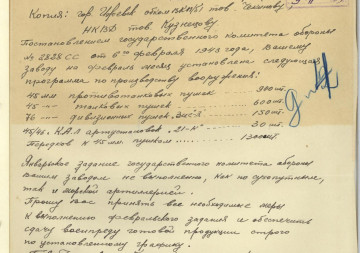 Копия: гор. Ижевск обком ВКП(б) тов. Чекинову
НКВД тов. Кузнецову
Постановлением государственного комитета обороны
№ 2828 СС от 6го февраля 1943 года Вашему
заводу на февраль месяц установлена следующая
программа по производству вооружения:
45 мм противотанковых пушек 900 шт.
45 мм танковых пушек 600 шт.
76 мм дивизионных пушек "ЗИС-3" 150 шт.
45/46 К.А.Л артустановок 21-К 30 шт.
Передков к 45 мм пушкам 1300 шт.
Январское задание государственного комитета обороны
Вашим заводом не выполнено, как по сухопутным,
так и морской артиллерией.
Прошу Вас принять все необходимые меры
к выполнению февральского задания и обеспечить
сдачу военпреду готовой продукции строго
по установленному графику.